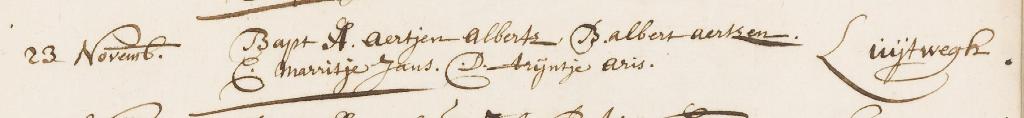 23 Novemb. Bapt A. aertjen alberts, P. albert aertsen. uijtwegh.
E. marritje Jans. D. trijntje aris.